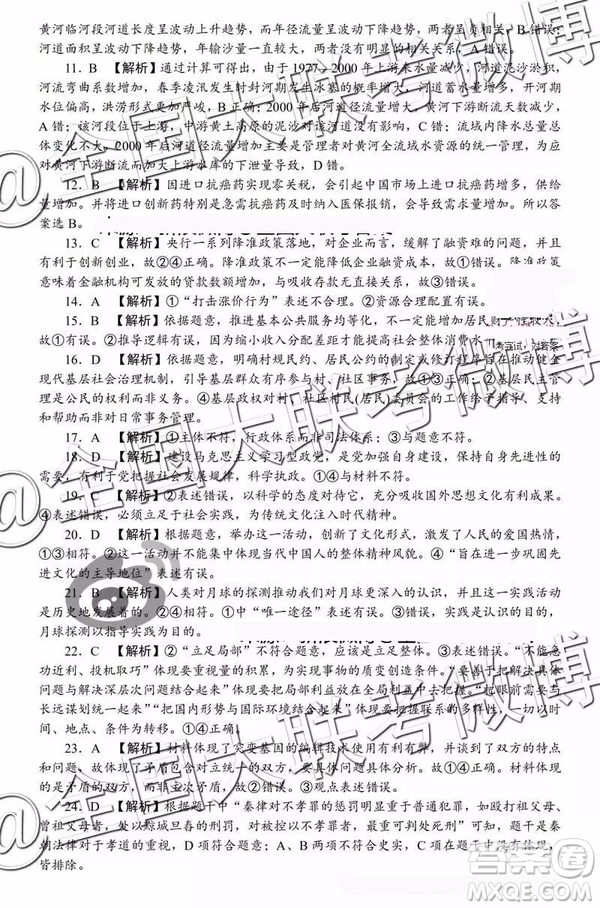 黄河临河段河道长度呈波动上升趋势，而年径流量呈波动下降趋势，两者呈负相关，B错误；
河道面积呈波动下降趋势，年输沙量一直较大，两者没有明显的相关关系，A错误。
11．B 【解析】通过计算可得出，由于1977—2000年上游来水量减少，河道泥沙淤积，
河流弯曲系数增加，春季凌汛发生时封河期发生冰塞的概率增大，河道蓄水量增多，开河期
水位偏高，洪涝形式更加严峻，B正确；2000年后河道径流量增大，黄河下游断流天数减少，
A错；该河段位于上游，中游黄土高原的泥沙对该河道没有影响，C错；流域内降水总量总
体变化不大，2000年后河道径流量增大主要得益于管理者对黄河全流域水资源的统一管理，为应
对黄河下游断流而加大上游水库的下泄量导致，D错。
12．B 【解析】因进口抗癌药实现零关税，会引起中国市场上进口抗癌药增多，供给
量增加。并将进口创新药特别是急需抗癌药及时纳入医保报销，会导致需求量增加。所以答
案选B。
13．C 【解析】央行一系列降准政策落地，对企业而言，缓解了融资难的问题，并且
有利于创新创业，故②④正确。降准政策不一定能降低企业融资成本，故①错误。降准政策
意味着金融机构可发放的贷款数额增加，与吸收存款无直接关系，故③错误。
14．A 【解析】①“打击涨价行为”表述不合理。②资源合理配置有误。
15．B 【解析】依据题意，推进基本公共服务均等化，不一定能增加居民财产性收入，
故①有误；②推导逻辑有误，因为缩小收入分配差距才能提高社会整体消费水平
16．D 【解析】依据题意，明确村规民约、居民公约的制定或修订程序旨在推动健全
现代基层社会治理机制，引导基层群众参与村、社区事务，故①③正确。②基层民主管理
是公民的权利而非义务。④基层政权对村、社区村民(居民)委员会的工作给予指导、支持
和帮助而非对日常事务管理。
17．A 【解析】①主体不符，行政体系而非司法体系；③与题意不符。
18．D 【解析】建设马克思主义学习型政党，是党加强自身建设，保持自身先进性的
需要，有利于党把握社会发展规律，科学执政。①④与材料不符。
19．C 【解析】②表述错误，创新发展传统文化有利于吸收国外思想文化有利成果。
④表述错误，必须立足于社会实践，为传统文化注入时代精神。
20．D 【解析】根据题意，举办这一活动，创新了文化形式，激发了人民的爱国热情，
①③符合。②这一活动并不能集中体现当代中国人的整体精神风貌。④“旨在进一步巩固先
进文化的主导地位”表述有误。
21．B 【解析】人类对月球的探测推动我们对月球更深更广的认识，体现了实践活动
是历史地发展着的。②④符合。①中“唯一途径”表述有误。③表述错误，根据题意，是从
月球探测以指导实践为目的。
22．C 【解析】②“立足局部”不符合题意，应该是立足整体。③表述错误。“不能急
功近利、投机取巧”体现要重视量的积累，为实现事物的质变创造条件。“要善于把解决具体
问题与解决深层次问题结合起来”体现要把局部利益放在全局利益中去把握。“把眼前需要与
长远谋划统一起来”“把国内形势与国际环境结合起来”体现要把握联系的多样性，一切以时
间、地点、条件为转移。①④正确。
23．A 【解析】材料体现了突变基因的编辑技术有利有弊，并谈到了双方的特点和
问题，故体现了矛盾的普遍性，也包含对立统一的双方，①②符合。③材料不体现。④双方
是矛盾关系，而非主次矛盾，故④错误。
24．D 【解析】根据题干中“秦律对不孝罪的惩罚明显重于普通犯罪，如殴打祖父母、
曾祖父母者，处以黥城旦舂的刑罚，对黥罪从重处以不孝罪，则可判处死刑”，可知，题干是秦
朝法律对于孝道的重视，D项符合题意；A、B两项不符合史实，C项在题干中没有体现，
皆排除。
@全国大联考微博
答案圈
MXQE.COM